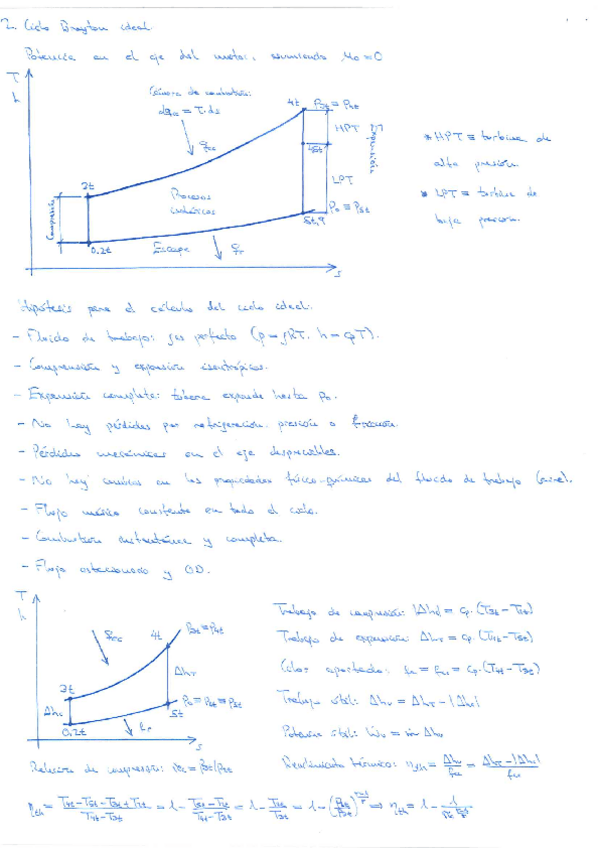 2. Ciclo Brayton ideal.
Potencia en el eje del motor, asumiendo M₀ = 0
T
h
Cámara de combustión:
dq = T·ds
4t
P3t = P4t
HPT
Expansión
45t
LPT
3t
Procesos
isobáricos
Compresión
P₀ = P5t
5t, 9
0.2t
Escape
s
* HPT ≡ turbina de
alta presión
* LPT ≡ turbina de
baja presión.
Hipótesis para el cálculo del ciclo ideal:
- Fluido de trabajo: gas perfecto (p = ρRT, h = cpT).
- Compresión y expansión isentrópicas.
- Expansión completa: tobera expande hasta p₀.
- No hay pérdidas por refrigeración, presión o fricción.
- Pérdidas mecánicas en el eje despreciables.
- No hay cambios en las propiedades físico-químicas del fluido de trabajo (aire).
- Flujo másico constante en todo el ciclo.
- Combustión instantánea y completa.
- Flujo estacionario y 0D.
T
h
4t
P3t = P4t
ΔhT
3t
Δhc
P₀ = P2t = P5t
5t
0.2t
s
Trabajo de compresión: |Δhc| = cp·(T3t - T2t)
Trabajo de expansión: ΔhT = cp·(T4t - T5t)
Calor aportado: = cp·(T4t - T3t)
Trabajo útil: Δhu = ΔhT - |Δhc|
Potencia útil: Ẇu = ṁ Δhu
Relación de compresión: πc = P3t/P2t
Rendimiento térmico: ηth =